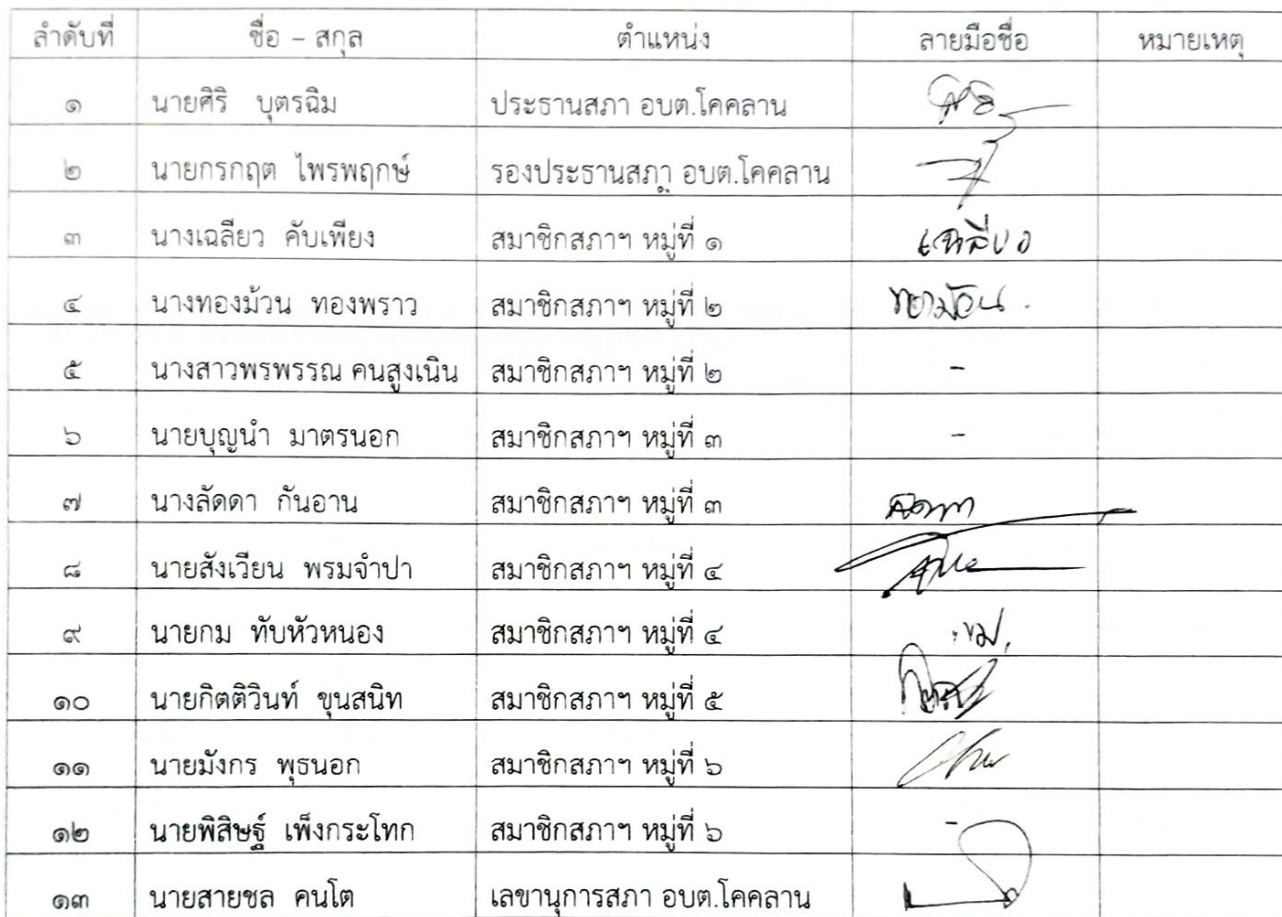 ลำดับที่ ชื่อ – สกุล ตำแหน่ง ลายมือชื่อ หมายเหตุ
๑ นายศิริ บุตรฉิม ประธานสภา อบต.โคคลาน
๒ นายกรกฤต ไพรพฤกษ์ รองประธานสภา อบต.โคคลาน
๓ นางเฉลียว คับเพียง สมาชิกสภาฯ หมู่ที่ ๑ เฉลียว
๔ นางทองม้วน ทองพราว สมาชิกสภาฯ หมู่ที่ ๒ ทองม้วน
๕ นางสาวพรพรรณ คนสูงเนิน สมาชิกสภาฯ หมู่ที่ ๒ -
๖ นายบุญนำ มาตรนอก สมาชิกสภาฯ หมู่ที่ ๓ -
๗ นางลัดดา กันอาน สมาชิกสภาฯ หมู่ที่ ๓ ลัดดา
๘ นายสังเวียน พรมจำปา สมาชิกสภาฯ หมู่ที่ ๔
๙ นายกม ทับหัวหนอง สมาชิกสภาฯ หมู่ที่ ๔
๑๐ นายกิตติวินท์ ขุนสนิท สมาชิกสภาฯ หมู่ที่ ๕
๑๑ นายมังกร พุธนอก สมาชิกสภาฯ หมู่ที่ ๖
๑๒ นายพิสิษฐ์ เพ็งกระโทก สมาชิกสภาฯ หมู่ที่ ๖ -
๑๓ นายสายชล คนโต เลขานุการสภา อบต.โคคลาน